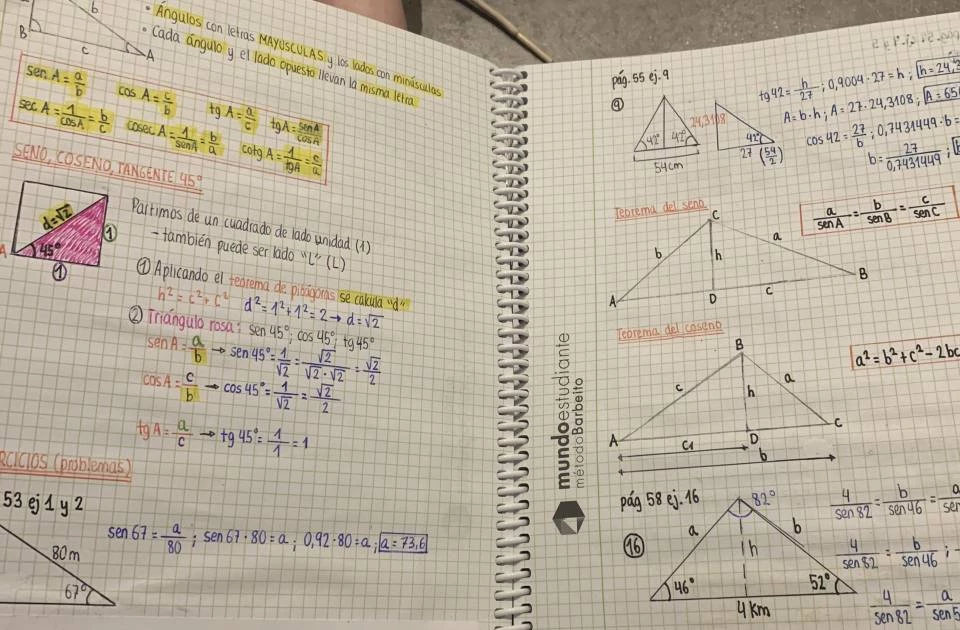 b
B
c
A
• Ángulos con letras MAYÚSCULAS y los lados con minúsculas
• Cada ángulo y el lado opuesto llevan la misma letra
sen A = a/b
cos A = c/b
tg A = a/c
tg A = senA/cosA
sec A = 1/cosA = b/c
cosec A = 1/senA = b/a
cotg A = 1/tgA = c/a
SENO, COSENO, TANGENTE 45°
d=√2
45°
A
①
①
Partimos de un cuadrado de lado unidad (1)
- también puede ser lado "L" (L)
① Aplicando el teorema de pitágoras se calcula "d"
h² = c² + c² d² = 1² + 1² = 2 → d = √2
② Triángulo rosa: sen 45°; cos 45°; tg 45°
sen A = a/b → sen 45° = 1/√2 = √2/√2·√2 = √2/2
cos A = c/b → cos 45° = 1/√2 = √2/2
tg A = a/c → tg 45° = 1/1 = 1
RCICIOS (problemas)
53 ej 1 y 2
80m
67°
sen 67 = a/80 ; sen 67 · 80 = a ; 0,92 · 80 = a ; a = 73,6
pág. 55 ej. 9
⑨
42°
42°
54cm
24,3108
42°
27 (54/2)
tg 42 = h/27 ; 0,9004 · 27 = h ; h = 24,3
A = b · h ; A = 27 · 24,3108 ; A = 65
cos 42 = 27/b ; 0,7431449 · b =
b = 27/0,7431449 ;
Teorema del seno
a/senA = b/senB = c/senC
C
b
a
h
A
D
c
B
Teorema del coseno
a² = b² + c² - 2bc
B
c
a
h
A
D
C
c1
b
mundoestudiante
métodoBarbeito
pág 58 ej. 16
⑯
82°
a
b
h
46°
52°
4 Km
4/sen 82 = b/sen 46 = a/sen
4/sen 82 = b/sen 46 ;
4/sen 82 = a/sen 5